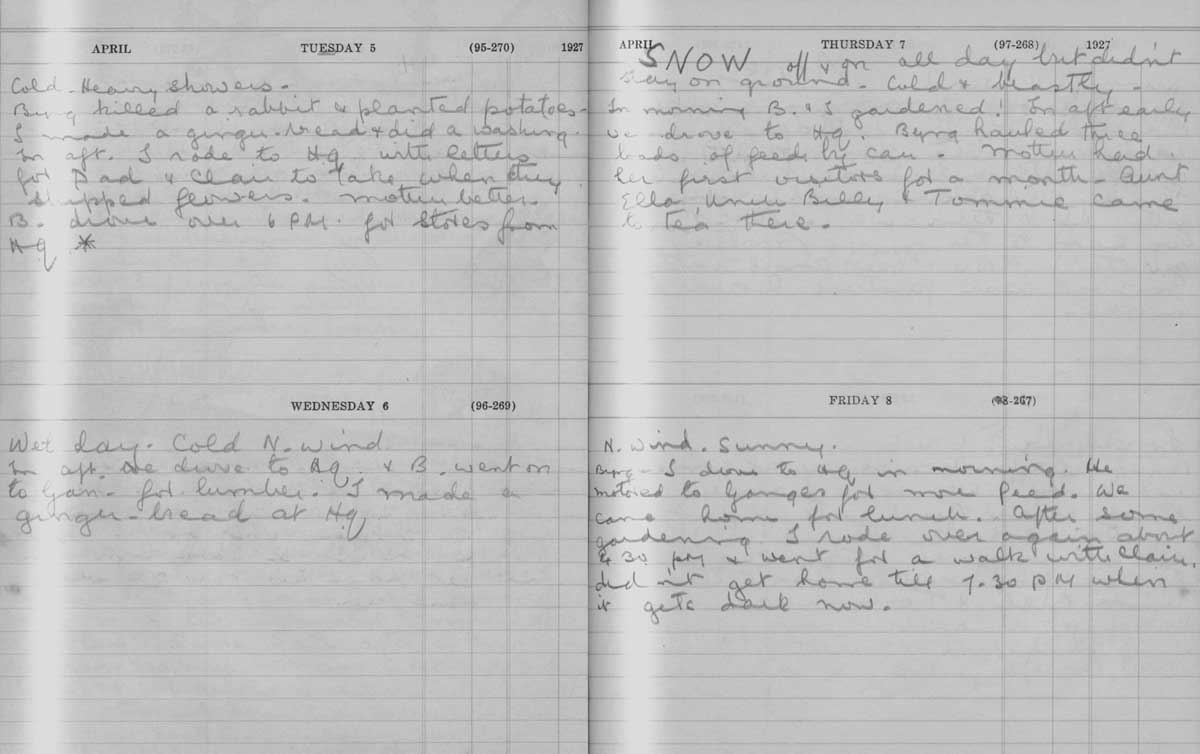 APRIL TUESDAY 5 (95-270) 1927
Cold. Heavy showers.
Byng killed a rabbit & planted potatoes.
I made a ginger-bread & did a washing.
In aft. I rode to Hq with letters
for Dad & Clair to take when they
shipped flowers. Mother better.
B. drove over 6 PM. for stores from
Hq *
WEDNESDAY 6 (96-269)
Wet day. Cold N. wind
In aft. we drove to Hq. & B. went on
to Gan. for lumber. I made a
ginger-bread at Hq
APRIL THURSDAY 7 (97-268) 1927
SNOW off & on all day but didn't
stay on ground. Cold & beastly.
In morning B. & I gardened! In aft early
we drove to Hq. Byng hauled three
loads of feed by car. Mother had
her first visitors for a month - Aunt
Ella, Uncle Billy & Tommie came
to tea there.
FRIDAY 8 (98-267)
N. wind. Sunny.
Byng - I drove to Hq in morning. He
motored to Ganges for more feed. We
came home for lunch. After some
gardening I rode over again about
4.30 PM & went for a walk with Clair.
didn't get home till 7.30 PM when
it gets dark now.